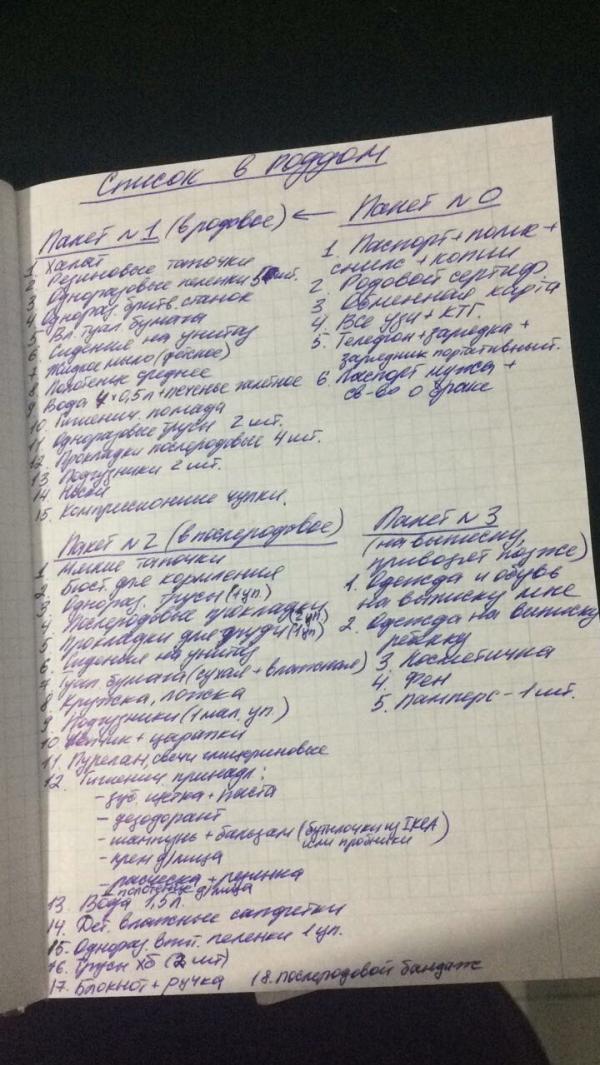 Список в роддом
Пакет №1 (в родовое) ←
1. Халат
2. Резиновые тапочки
3. Одноразовые пеленки 5 шт.
4. Однораз. бритв. станок
5. Вл. туал. бумага
6. Сидение на унитаз
7. Жидкое мыло (детское)
8. Полотенце среднее
9. Вода 4×0,5л + печенье галетное
10. Гигиенич. помада
11. Одноразовые трусы 2 шт.
12. Прокладки послеродовые 4 шт.
13. Подгузники 2 шт.
14. Носки
15. Компрессионные чулки.
Пакет №0
1. Паспорт + полис +
снилс + копии
2. Родовой сертиф.
3. Обменная карта
4. Все узи + КТГ.
5. Телефон + зарядка +
зарядник портативный.
6. Паспорт мужа +
св-во о браке
Пакет №2 (в послеродовое)
1. Мягкие тапочки
2. Бюст. для кормления
3. Однораз. трусы (1уп.)
4. Послеродовые прокладки (2уп.)
5. Прокладки для груди (1уп)
6. Сиденья на унитаз
7. Туал. бумага (сухая + влажная)
8. Кружка, ложка
9. Подгузники (1 мал. уп.)
10. Чепчик + царапки
11. Пурелан, свечи глицериновые
12. Гигиенич. принадл:
- зуб. щетка + паста
- дезодорант
- шампунь + бальзам (бутылочки из IKEA
или пробники)
- крем д/лица
- расческа + резинка
- полотенце д/лица
13. Вода 1,5 л.
14. Дет. влажные салфетки
15. Однораз. впит. пеленки 1 уп.
16. Трусы хб (2 шт)
17. Блокнот + ручка 18. послеродовой бандаж
Пакет №3
(на выписку,
привозят позже)
1. Одежда и обувь
на выписку мне
2. Одежда на выписку
ребёнку
3. Косметичка
4. Фен
5. Памперс - 1 шт.